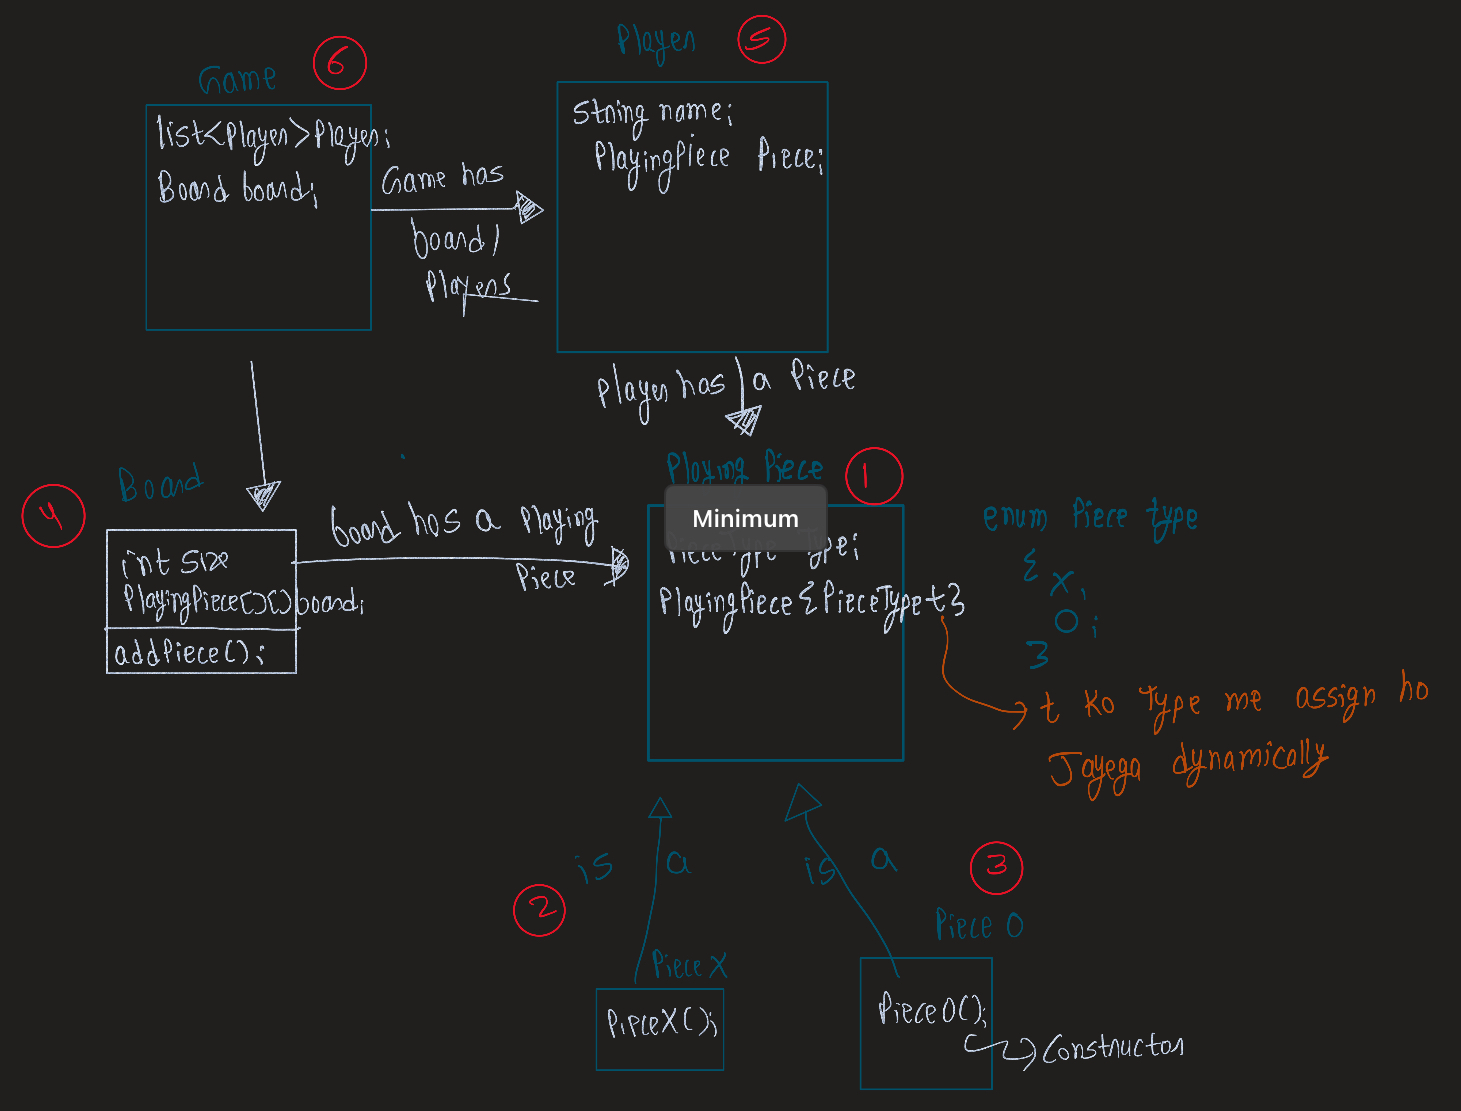 Game
6
list<Player>Player;
Board board;
Game has
board/
Players
Player
5
String name;
PlayingPiece Piece;
Player has a Piece
Board
4
int Size
PlayingPiece[][] board;
addPiece();
board has a Playing
Piece
Playing Piece
1
Minimum
PieceType Type;
PlayingPiece{PieceType t}
enum Piece type
{
X,
O;
}
t ko Type me assign ho
Jayega dynamically
is a
2
Piece X
PieceX();
is a
3
Piece O
PieceO();
Constructor